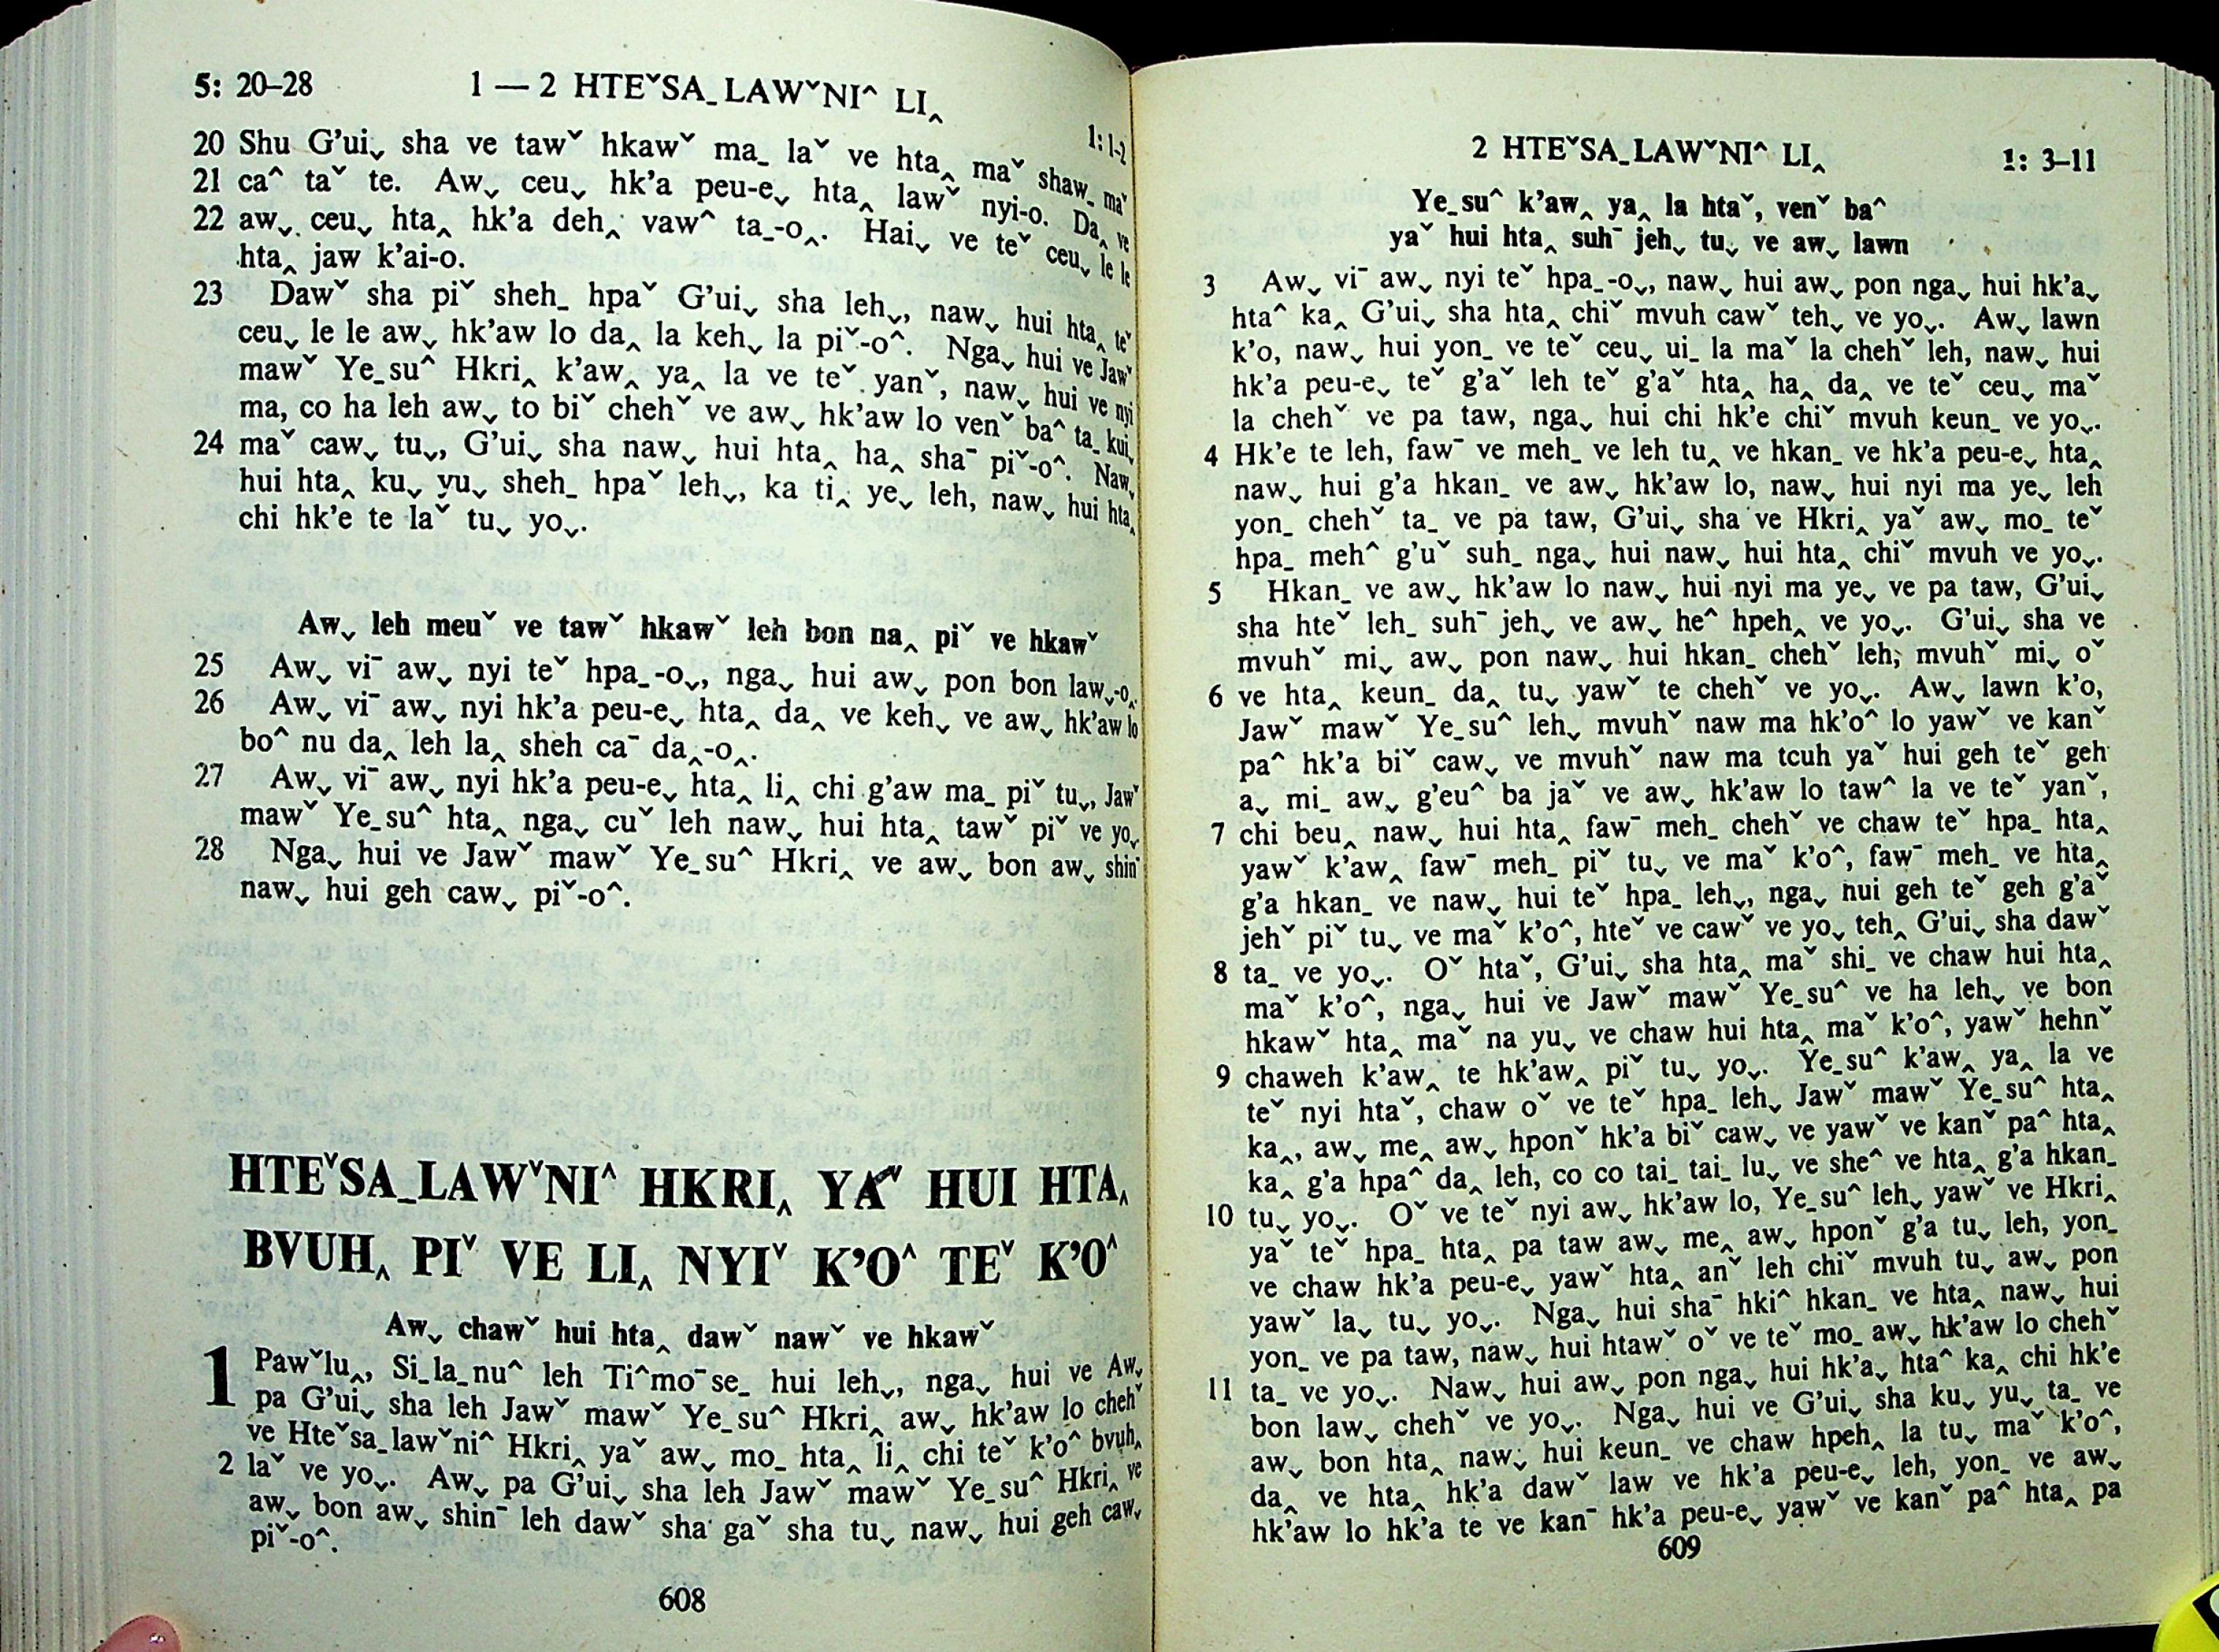 5: 20–28 1 — 2 HTEˇSA_LAWˇNI^ LI‸ 1: 1-2
20 Shu G’ui˯ sha ve tawˇ hkawˇ ma_ laˇ ve hta‸ maˇ shaw_ maˇ
21 ca^ taˇ te. Aw˯ ceu˯ hk’a peu-e˯ hta‸ lawˇ nyi-o. Da‸ ve
22 aw˯ ceu˯ hta‸ hk’a deh‸ vaw^ ta_-o‸. Hai˯ ve teˇ ceu˯ le le
hta‸ jaw k’ai-o.
23 Dawˇ sha piˇ sheh_ hpaˇ G’ui˯ sha leh˯, naw˯ hui hta‸ teˇ
ceu˯ le le aw˯ hk’aw lo da‸ la keh˯ la piˇ-o^. Nga˯ hui ve Jawˇ
mawˇ Ye_su^ Hkri‸ k’aw‸ ya‸ la ve teˇ yanˇ, naw˯ hui ve nyi
ma, co ha leh aw˯ to biˇ chehˇ ve aw˯ hk’aw lo venˇ ba^ ta_ kui˯
24 maˇ caw˯ tu˯, G’ui˯ sha naw˯ hui hta‸ ha‸ shaˉ piˇ-o^. Naw˯
hui hta‸ ku˯ yu˯ sheh_ hpaˇ leh˯, ka ti‸ ye˯ leh, naw˯ hui hta‸
chi hk’e te laˇ tu˯ yo˯.
Aw˯ leh meuˇ ve tawˇ hkawˇ leh bon na‸ piˇ ve hkawˇ
25 Aw˯ viˉ aw˯ nyi teˇ hpa_-o˯, nga˯ hui aw˯ pon bon law˯-o‸
26 Aw˯ viˉ aw˯ nyi hk’a peu-e˯ hta‸ da‸ ve keh˯ ve aw˯ hk’aw lo
bo^ nu da‸ leh la‸ sheh caˉ da‸-o‸.
27 Aw˯ viˉ aw˯ nyi hk’a peu-e˯ hta‸ li‸ chi g’aw ma_ piˇ tu˯, Jawˇ
mawˇ Ye_su^ hta‸ nga˯ cuˇ leh naw˯ hui hta‸ tawˇ piˇ ve yo˯
28 Nga˯ hui ve Jawˇ mawˇ Ye_su^ Hkri‸ ve aw˯ bon aw˯ shinˉ
naw˯ hui geh caw˯ piˇ-o^.
HTEˇSA_LAWˇNI^ HKRI‸ YAˇ HUI HTA‸
BVUH‸ PIˇ VE LI‸ NYIˇ K’O^ TEˇ K’O^
Aw˯ chawˇ hui hta‸ dawˇ nawˇ ve hkawˇ
1 Pawˇlu‸, Si_la_nu^ leh Ti^moˉse_ hui leh˯, nga˯ hui ve Aw˯
pa G’ui˯ sha leh Jawˇ mawˇ Ye_su^ Hkri‸ aw˯ hk’aw lo chehˇ
ve Hteˇsa_lawˇni^ Hkri‸ yaˇ aw˯ mo_ hta‸ li‸ chi teˇ k’o^ bvuh‸
2 laˇ ve yo˯. Aw˯ pa G’ui˯ sha leh Jawˇ mawˇ Ye_su^ Hkri‸ ve
aw˯ bon aw˯ shinˉ leh dawˇ sha gaˇ sha tu˯ naw˯ hui geh caw˯
piˇ-o^.
608
2 HTEˇSA_LAWˇNI^ LI‸ 1: 3–11
Ye_su^ k’aw‸ ya‸ la htaˇ, venˇ ba^
yaˇ hui hta‸ suhˉ jeh˯ tu˯ ve aw˯ lawn
3 Aw˯ viˉ aw˯ nyi teˇ hpa_-o˯, naw˯ hui aw˯ pon nga˯ hui hk’a˯
hta^ ka‸ G’ui˯ sha hta‸ chiˇ mvuh cawˇ teh˯ ve yo˯. Aw˯ lawn
k’o, naw˯ hui yon_ ve teˇ ceu˯ ui_ la maˇ la chehˇ leh, naw˯ hui
hk’a peu-e˯ teˇ g’aˇ leh teˇ g’aˇ hta‸ ha‸ da‸ ve teˇ ceu˯ maˇ
la chehˇ ve pa taw, nga˯ hui chi hk’e chiˇ mvuh keun_ ve yo˯.
4 Hk’e te leh, fawˉ ve meh_ ve leh tu‸ ve hkan_ ve hk’a peu-e˯ hta‸
naw˯ hui g’a hkan_ ve aw˯ hk’aw lo, naw˯ hui nyi ma ye˯ leh
yon_ chehˇ ta_ ve pa taw, G’ui˯ sha ve Hkri‸ yaˇ aw˯ mo_ teˇ
hpa_ meh^ g’uˇ suh_ nga˯ hui naw˯ hui hta‸ chiˇ mvuh ve yo˯.
5 Hkan_ ve aw˯ hk’aw lo naw˯ hui nyi ma ye˯ ve pa taw, G’ui˯
sha hteˇ leh_ suhˉ jeh˯ ve aw˯ he^ hpeh‸ ve yo˯. G’ui˯ sha ve
mvuhˇ mi˯ aw˯ pon naw˯ hui hkan_ chehˇ leh, mvuhˇ mi˯ oˇ
6 ve hta‸ keun_ da‸ tu˯ yawˇ te chehˇ ve yo˯. Aw˯ lawn k’o,
Jawˇ mawˇ Ye_su^ leh˯ mvuhˇ naw ma hk’o^ lo yawˇ ve kanˇ
pa^ hk’a biˇ caw˯ ve mvuhˇ naw ma tcuh yaˇ hui geh teˇ geh
a˯ mi_ aw˯ g’eu^ ba jaˇ ve aw˯ hk’aw lo taw^ la ve teˇ yanˇ,
7 chi beu‸ naw˯ hui hta‸ fawˉ meh_ chehˇ ve chaw teˇ hpa_ hta‸
yawˇ k’aw‸ fawˉ meh_ piˇ tu˯ ve maˇ k’o^, fawˉ meh_ ve hta‸
g’a hkan_ ve naw˯ hui teˇ hpa_ leh˯, nga˯ hui geh teˇ geh g’aˇ
jehˇ piˇ tu˯ ve maˇ k’o^, hteˇ ve cawˇ ve yo˯ teh‸ G’ui˯ sha dawˇ
8 ta_ ve yo˯. Oˇ htaˇ, G’ui˯ sha hta‸ maˇ shi_ ve chaw hui hta‸
maˇ k’o^, nga˯ hui ve Jawˇ mawˇ Ye_su^ ve ha leh˯ ve bon
hkawˇ hta‸ maˇ na yu˯ ve chaw hui hta‸ maˇ k’o^, yawˇ hehnˇ
9 chaweh k’aw‸ te hk’aw‸ piˇ tu˯ yo˯. Ye_su^ k’aw‸ ya‸ la ve
teˇ nyi htaˇ, chaw oˇ ve teˇ hpa_ leh˯ Jawˇ mawˇ Ye_su^ hta‸
ka‸, aw˯ me‸ aw˯ hponˇ hk’a biˇ caw˯ ve yawˇ ve kanˇ pa^ hta‸
ka‸ g’a hpa^ da‸ leh, co co tai_ tai_ lu˯ ve she^ ve hta‸ g’a hkan_
10 tu˯ yo˯. Oˇ ve teˇ nyi aw˯ hk’aw lo, Ye_su^ leh˯ yawˇ ve Hkri‸
yaˇ teˇ hpa_ hta‸ pa taw aw˯ me‸ aw˯ hponˇ g’a tu˯ leh, yon_
ve chaw hk’a peu-e˯ yawˇ hta‸ anˇ leh chiˇ mvuh tu˯ aw˯ pon
yawˇ la˯ tu˯ yo˯. Nga˯ hui shaˉ hki^ hkan_ ve hta‸ naw˯ hui
yon_ ve pa taw, naw˯ hui htawˇ oˇ ve teˇ mo_ aw˯ hk’aw lo chehˇ
11 ta_ ve yo˯. Naw˯ hui aw˯ pon nga˯ hui hk’a˯ hta^ ka‸ chi hk’e
bon law˯ chehˇ ve yo˯. Nga˯ hui ve G’ui˯ sha ku˯ yu˯ ta_ ve
aw˯ bon hta‸ naw˯ hui keun_ ve chaw hpeh‸ la tu˯ maˇ k’o^,
da‸ ve hta‸ hk’a dawˇ law ve hk’a peu-e˯ leh, yon_ ve aw˯
hk’aw lo hk’a te ve kanˉ hk’a peu-e˯ yawˇ ve kanˇ pa^ hta‸ pa
609